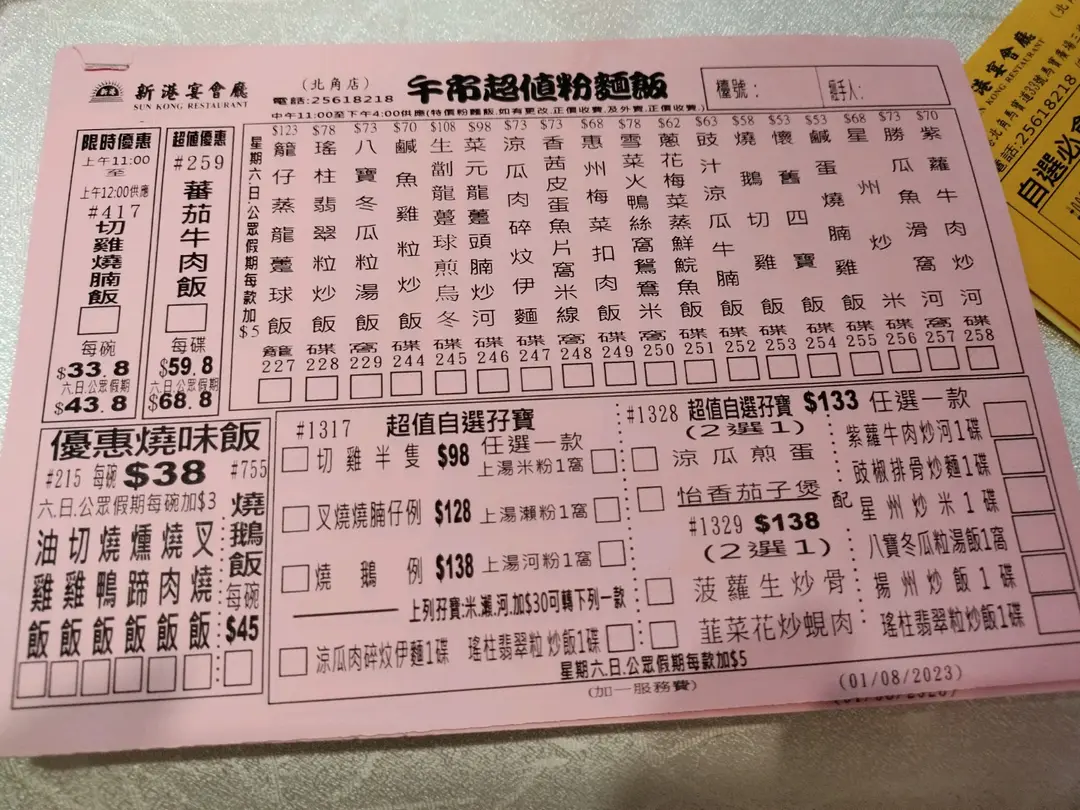 新港宴會廳
SUN KONG RESTAURANT
(北角店)
電話:25618218
午市超值粉麵飯
檯號:
經手人:
中午11:00至下午4:00供應(特價粉麵飯,如有更改,正價收費,及外賣,正價收費,)
限時優惠
上午11:00
至
上午12:00供應
#417
切雞燒腩飯
每碗
$33.8
六.日.公眾假期
$43.8
超值優惠
#259
蕃茄牛肉飯
每碟
$59.8
六.日.公眾假期
$68.8
星期六.日.公眾假期每款加$5
$123 籠仔蒸龍躉球飯 籠 227
$78 瑤柱翡翠粒炒飯 碟 228
$73 八寶冬瓜粒湯飯 窩 229
$70 鹹魚雞粒炒飯 碟 244
$108 生劏龍躉球煎烏冬 碟 245
$98 菜元龍躉頭腩炒河 碟 246
$73 涼瓜肉碎炆伊麵 碟 247
$73 香茜皮蛋魚片窩米線 窩 248
$68 惠州梅菜扣肉飯 碟 249
$78 雪火鴨絲窩鴛鴦米 窩 250
$62 蔥花梅菜蒸鮮鯇魚飯 碟 251
$63 豉汁涼瓜牛腩飯 碟 252
$58 燒鵝切雞飯 碟 253
$53 懷舊四寶飯 碟 254
$53 鹹蛋燒腩雞飯 碟 255
$68 星州炒米 碟 256
$73 勝瓜魚滑窩河 窩 257
$70 紫蘿牛肉炒河 碟 258
優惠燒味飯
#215 每碗 $38
六.日.公眾假期每碗加$3
油雞飯
切雞飯
燒鴨飯
燻蹄飯
燒肉飯
叉燒飯
#755
燒鵝飯
每碗
$45
#1317 超值自選孖寶
切雞半隻 $98 任選一款
上湯米粉1窩
叉燒燒腩仔例 $128 上湯瀨粉1窩
燒鵝例 $138 上湯河粉1窩
上列孖寶:米.瀨.河.加$30可轉下列一款
涼瓜肉碎炆伊麵1碟 瑤柱翡翠粒炒飯1碟
#1328 超值自選孖寶 $133 任選一款
(2選1)
涼瓜煎蛋
怡香茄子煲
#1329 $138
(2選1)
菠蘿生炒骨
韮菜花炒蜆肉
配
紫蘿牛肉炒河1碟
豉椒排骨炒麵1碟
星州炒米1碟
八寶冬瓜粒湯飯1窩
揚州炒飯1碟
瑤柱翡翠粒炒飯1碟
星期六.日.公眾假期每款加$5
(加一服務費)
(01/08/2023)
宴會廳
KONG RESTAURANT
北角馬寶道30號馬寶廣場三
電話:25618218
自選必